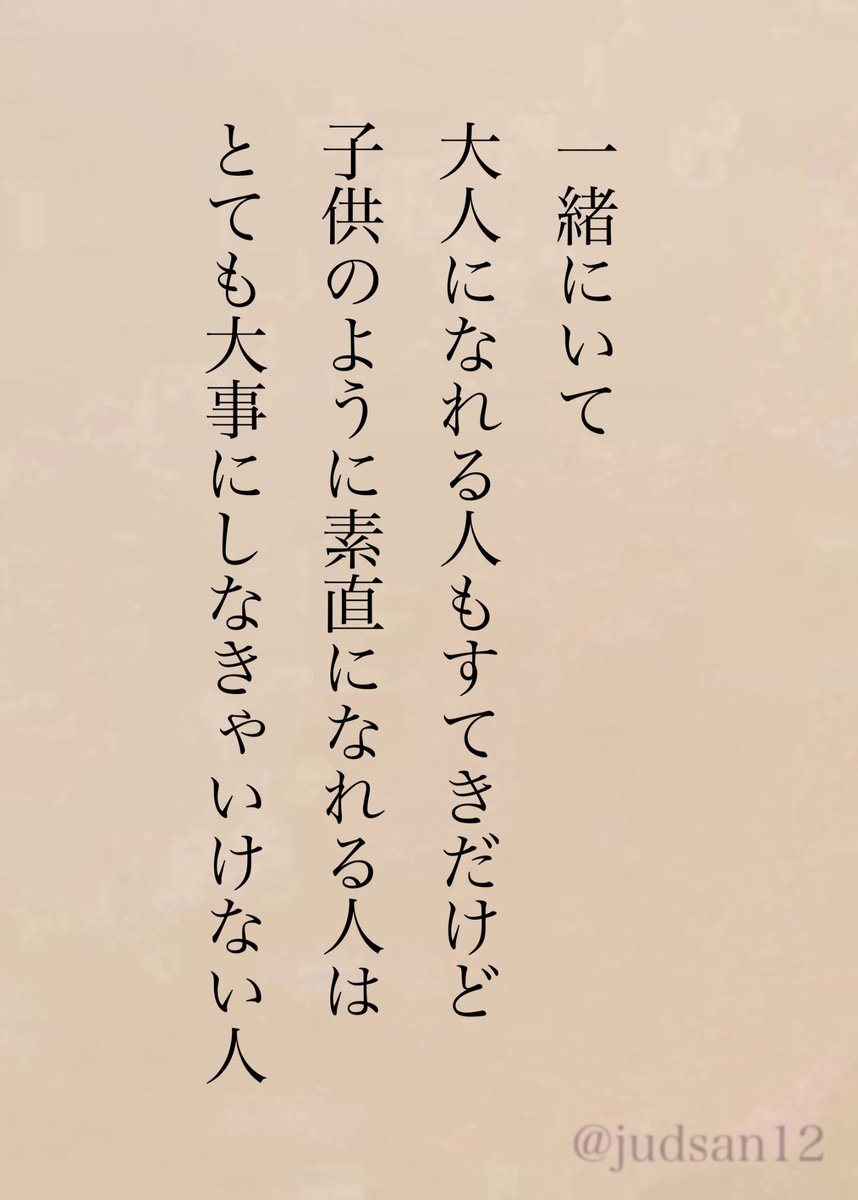 一緒にいて
大人になれる人もすてきだけど
子供のように素直になれる人は
とても大事にしなきゃいけない人
@judsan12